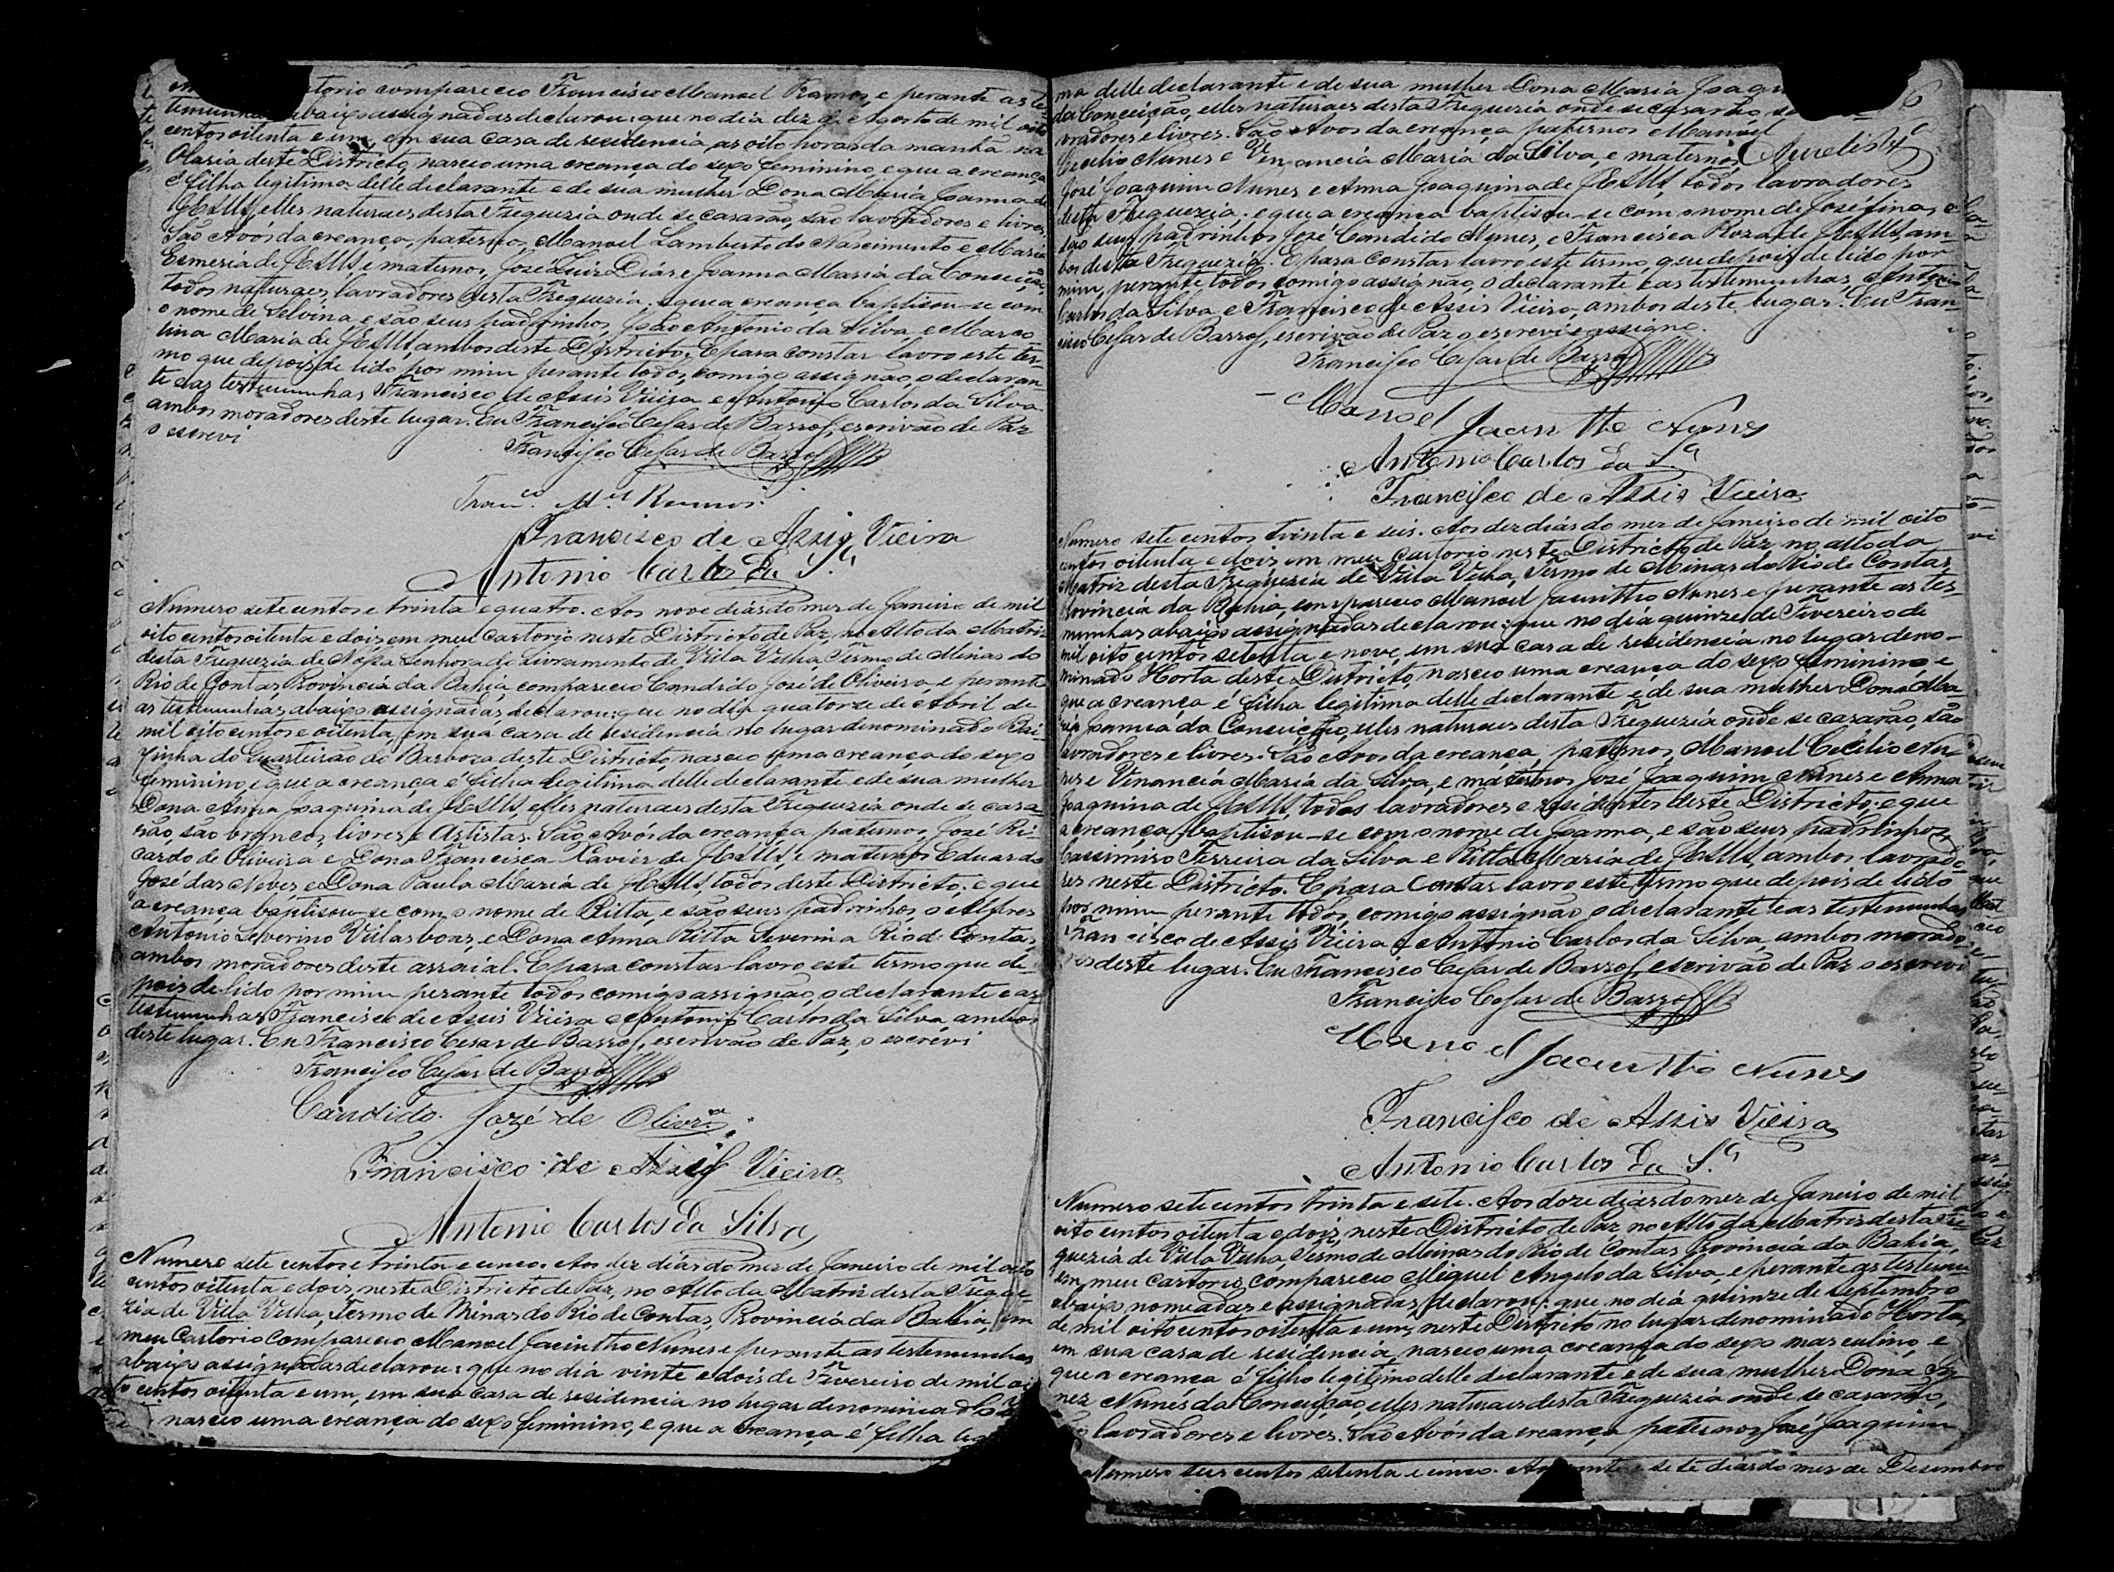 torio compareceo Francisco Manoel Ramos, e perante as tes-
abaixo assignadas declarou: que no dia dez de Agosto de mil oito
centos oitenta e um, em sua casa de residencia, as oito horas da manhã na
Olaria deste Districto, nasceo uma creança do sexo feminino, e que a creança
é filha legitima delle declarante e de sua mulher Dona Maria Joanna de
JESUS, elles naturaes desta Freguezia onde se casarão, são lavradores e livres.
São Avós da creança, paternos, Manoel Lamberto do Nascimento e Maria
Esmeria de JESUS, e maternos, José Luiz Dias e Joanna Maria da Conceição,
todos naturaes, lavradores desta Freguezia: e que a creança baptisou-se com
o nome de Selvina e são seus padrinhos, João Antonio da Silva, e Marco
lina Maria de JESUS, ambos deste Districto. E para constar lavro este ter-
mo que depois de lido por mim perante todos, comigo assignão, o declaran-
te e as testemunhas Francisco de Assis Vieira e Antonio Carlos da Silva
ambos moradores deste lugar. Eu Francisco Cesar de Barros, escrivão de Paz
o escrevi
Francisco Cesar de Barros
Fran.co M.el Ramos.
Francisco de Assis Vieira
Antonio Carlos da S.a
Numero sete centos e trinta e quatro. Aos nove dias do mez de Janeiro de mil
oito centos oitenta e dois, em meu cartorio neste Districto de Paz, no Alto da Matriz
desta Freguezia de Nossa Senhora do Livramento de Villa Velha, Termo de Minas do
Rio de Contas Provincia da Bahia compareceo Candido José de Oliveira, e perante
as testemunhas, abaixo assignadas, declarou: que no dia quatorze de Abril de
mil oito centos e oitenta, em sua casa de residencia no lugar denominado
do Quarteirão do Barboza deste Districto, nasceo uma creança do sexo
feminino, e que a creança é filha legitima delle declarante e de sua mulher
Dona Anna Joaquina de JESUS, elles naturaes desta Freguezia onde se casa-
rão, são brancos, livres, e Artistas. São Avós da creança, paternos, José Ri-
cardo de Oliveira e Dona Francisca Xavier de JESUS, e maternos Eduardo
José das Neves, e Dona Paula Maria de JESUS, todos deste Districto: e que
a creança baptisou-se com o nome de Ritta, e são seus padrinhos, o Alferes
Antonio Severino Villasboas, e Dona Anna Ritta Severina Rio de Contas
ambos moradores deste arraial. E para constar lavro este termo que de
pois de lido por mim perante todos comigo assignão, o declarante e as
testemunhas Francisco de Assis Vieira e Antonio Carlos da Silva, ambos
deste lugar. Eu Francisco Cesar de Barros, escrivão de Paz, o escrevi
Francisco Cesar de Barros
Candido José de Olivr.a
Francisco de Assis Vieira
Antonio Carlos da Silva
Numero sete centos e trinta e cinco. Aos dez dias do mez de Janeiro de mil oito
centos oitenta e dois, neste Districto de Paz, no Alto da Matriz desta Fregue-
zia de Villa Velha, Termo de Minas do Rio de Contas, Provincia da Bahia, em
meu Cartorio compareceo Manoel Jacintho Nunes e perante as testemunhas
abaixo assignadas declarou: que no dia vinte e dois de Fevereiro de mil oi
to centos oitenta e um, em sua casa de residencia no lugar denominado
nasceo uma creança do sexo feminino, e que a creança é filha
ma delle declarante e de sua mulher Dona Maria
da Conceição, elles naturaes desta Freguezia onde se casarão,
vradores e livres. São Avós da creança, paternos Manoel
Cecilio Nunes e Venancia Maria da Silva, e maternos,
José Joaquim Nunes e Anna Joaquina de JESUS, todos lavradores
desta Freguezia: e que a creança baptisou-se com o nome de Josefina, e
são seus padrinhos José Candido Nunes, e Francisca Roza de JESUS, am-
bos desta Freguezia. E para constar lavro este termo, que depois de lido por
mim, perante todos comigo assignão, o declarante e as testemunhas, Antonio
Carlos da Silva e Francisco de Assis Vieira, ambos deste lugar. Eu Fran-
cisco Cesar de Barros, escrivão de Paz, o escrevi e assigno.
Francisco Cesar de Barros
Manoel Jacinttho Nunes
Antonio Carlos da S.a
Francisco de Assis Vieira
Numero sete centos trinta e seis. Aos dez dias do mez de Janeiro de mil oito
centos oitenta e dois, em meu Cartorio neste Districto de Paz, no alto da
Matriz desta Freguezia de Villa Velha, Termo de Minas do Rio de Contas
Provincia da Bahia, compareceo Manoel Jacintho Nunes e perante as tes-
munhas abaixo assignadas declarou: que no dia quinze de Fevereiro de
mil oito centos setenta e nove, em sua casa de residencia no lugar deno-
minado Horta deste Districto, nasceo uma creança do sexo feminino, e
que a creança é filha legitima delle declarante e de sua mulher Dona Ma
ria Joanna da Conceição, elles naturaes desta Freguezia onde se casarão, são
lavradores e livres. São Avós da creança, paternos, Manoel Cecilio Nu-
nes e Venancia Maria da Silva, e maternos José Joaquim Nunes e Anna
Joaquina de JESUS, todos lavradores e residentes deste Districto: e que
a creança baptisou-se com o nome de Joanna, e são seus padrinhos
Cassimiro Ferreira da Silva e Ritta Maria de JESUS, ambos lavrado-
res neste Districto. E para Constar lavro este termo que depois de lido
por mim perante todos, comigo assignão, o declarante e as testemunhas
Francisco de Assis Vieira e Antonio Carlos da Silva ambos morado-
res deste lugar. Eu Francisco Cesar de Barros, escrivão de Paz o escrevi
Francisco Cesar de Barros
Manoel Jacinttho Nunes
Francisco de Assis Vieira
Antonio Carlos da S.a
Numero sete centos trinta e sete. Aos doze dias do mez de Janeiro de mil
oito centos oitenta e dois, neste Districto de Paz, no Alto da Matriz desta Fre
guezia de Villa Velha, Termo de Minas do Rio de Contas, Provincia da Bahia,
em meu Cartorio, compareceo Miguel Angelo da Silva, e perante as testemu
abaixo nomeadas e assignadas, declarou: que no dia quinze de Septembro
de mil oito centos oitenta e um, neste Districto no lugar denominado Horta,
em sua casa de residencia, nasceo uma creança do sexo masculino, e
que a creança é filho legitimo delle declarante e de sua mulher Dona Ig-
nez Nunes da Conceição, elles naturaes desta Freguezia onde se casarão,
lavradores e livres. São Avós da creança, paternos José Joaquim
Numero seis centos setenta e cinco. Aos vinte e sete dias do mez de Desembro